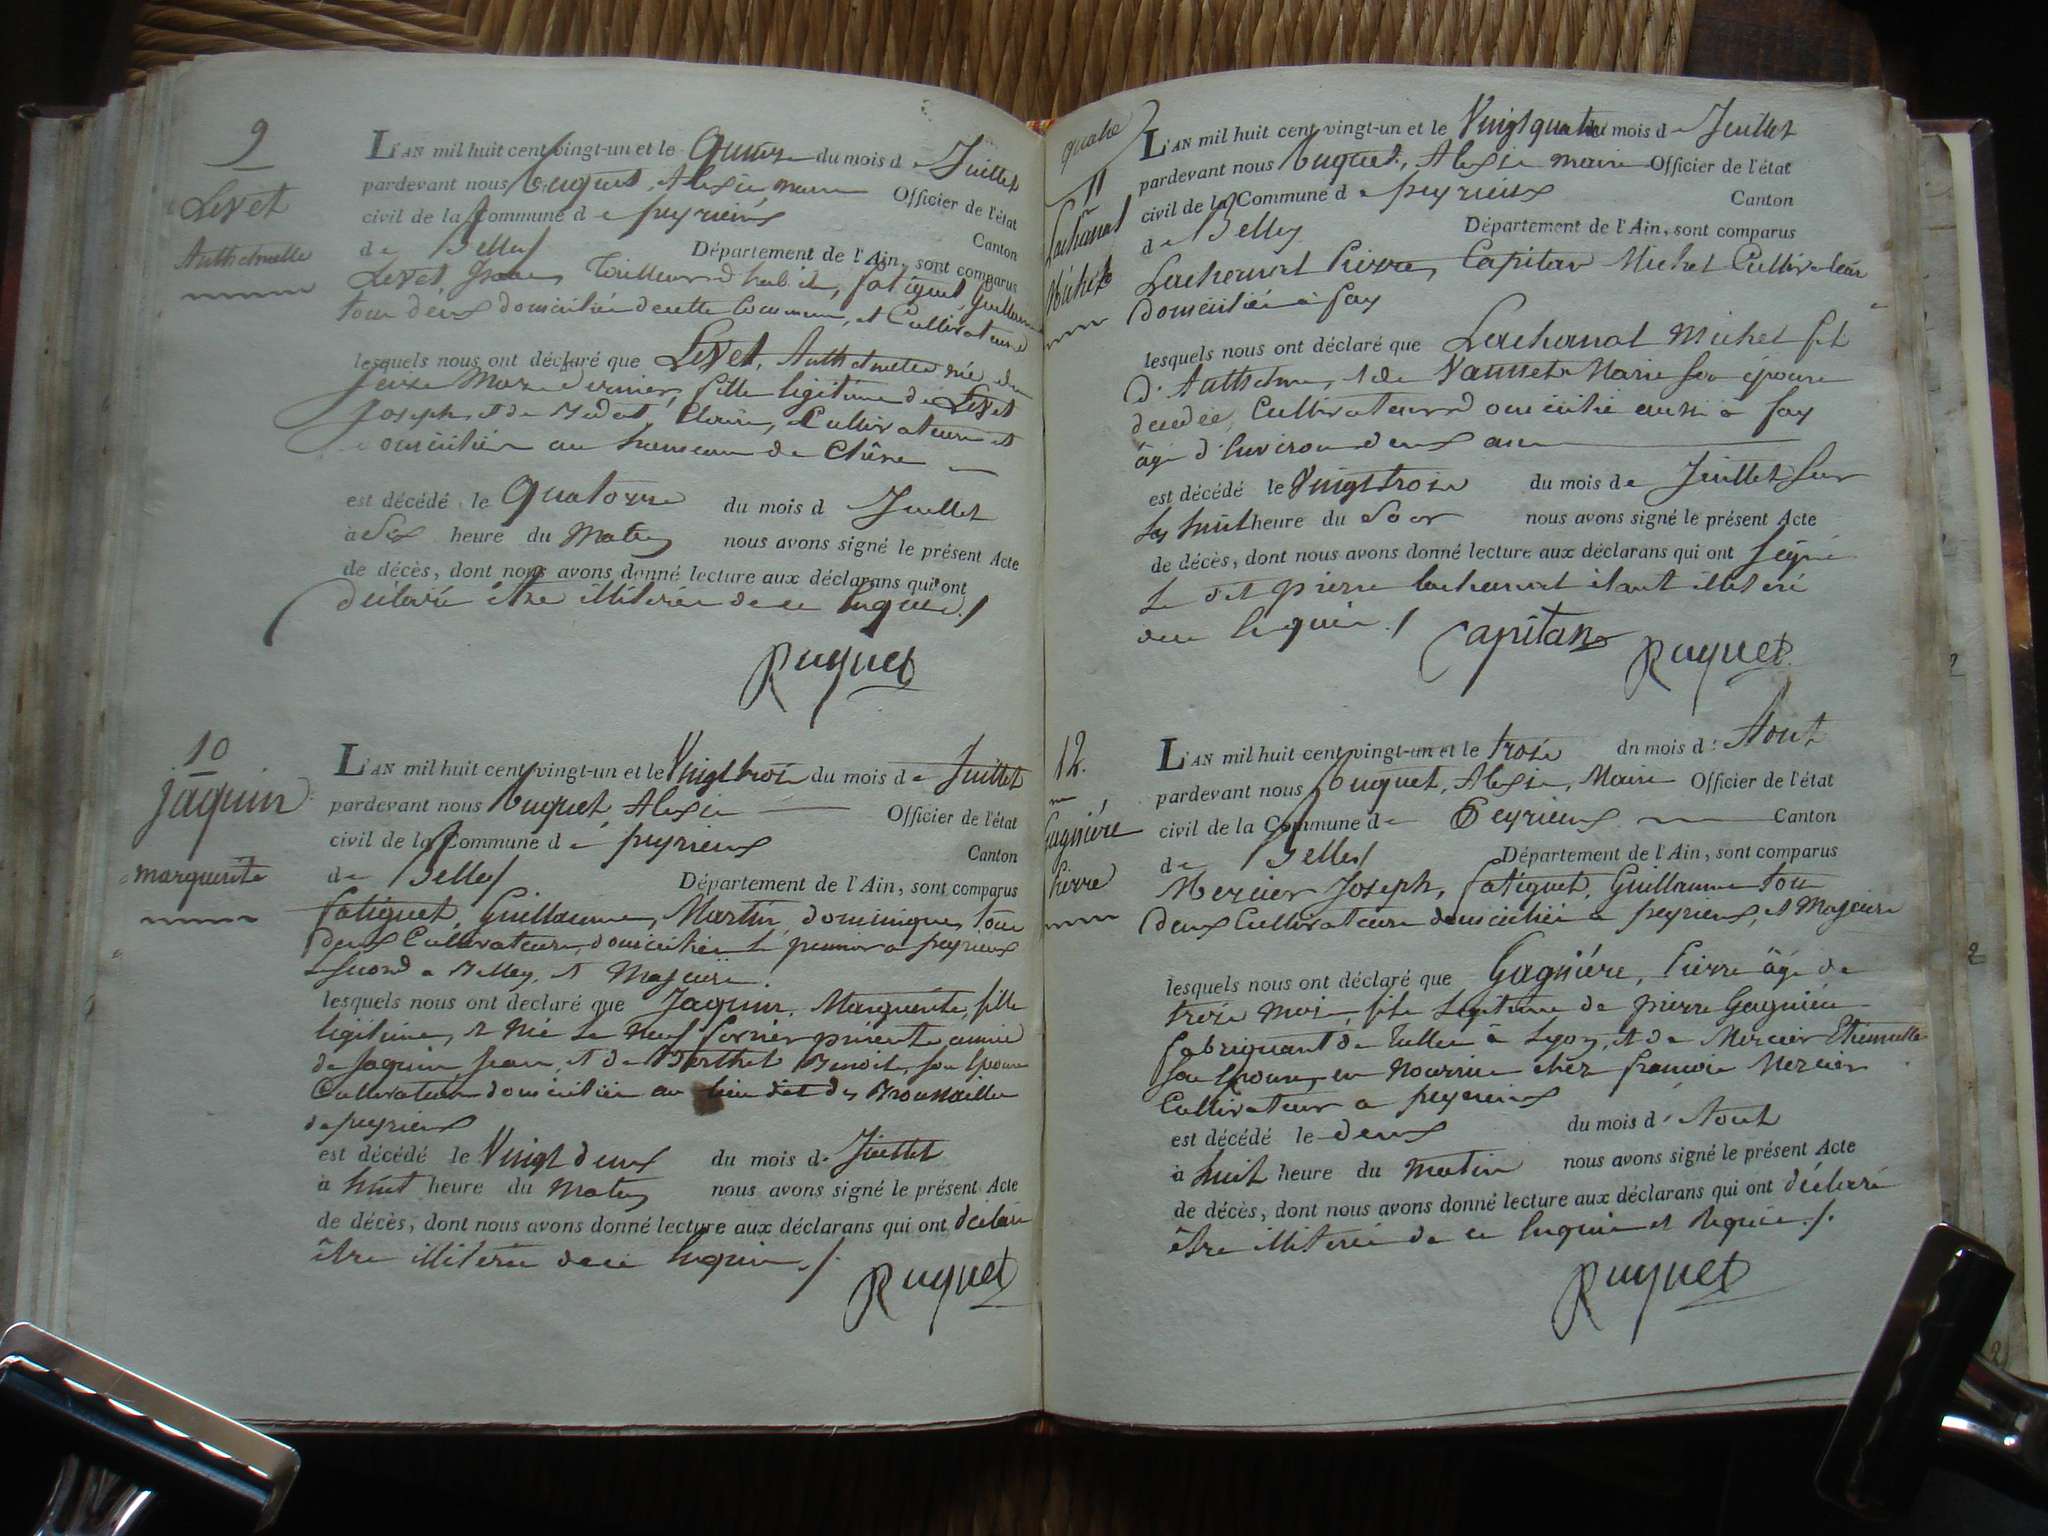 9
Levet
Anthelmette
L'AN mil huit cent vingt-un et le Quinze du mois de Juillet
pardevant nous Ruquet, Alexie maire Officier de l'état
civil de la Commune de peyrieux Canton
de Belley Département de l'Ain, sont comparus
Levet Tailleur d'habit, fatiguet, Guillaume
tous deux domicilié de cette Commune, et Cultivateurs
lesquels nous ont déclaré que Levet, Anthelmette née du
Seize Mars dernier, fille légitime de Levet
Joseph, et de Claire, Cultivateurs et
domicilié au hameau de Chêne
est décédé le Quatorze du mois d Juillet
à Six heure du Matin nous avons signé le présent Acte
de décès, dont nous avons donné lecture aux déclarans qui ont
déclaré être illitéré de ce Requie ./
Ruquet
10
jaquin
marguerite
L'AN mil huit cent vingt-un et le Vingt trois du mois de Juillet
pardevant nous Ruquet, Alexie Officier de l'état
civil de la Commune de peyrieux Canton
de Belley Département de l'Ain, sont comparus
fatiguet, Guillaume, Martin, dominique, tous
deux Cultivateurs domiciliés le premier a peyrieux
le second a Belley, et Majeurs.
lesquels nous ont déclaré que Jaquin, Marguerite, fille
légitime, et née le neuf fevrier présente année
de Jaquin Jean, et de Berthet Benoite, son Epouse
Cultivateurs domicilié au lieu dit des Brousailles
de peyrieux
est décédé le Vingt deux du mois de Juillet
à huit heure du Matin nous avons signé le présent Acte
de décès, dont nous avons donné lecture aux déclarans qui ont déclaré
être illitéré de ce Requie ./.
Ruquet
quatre
11
Lachanal
Michel
L'AN mil huit cent vingt-un et le Vingt quatre du mois d Juillet
pardevant nous Ruquet, Alexie maire Officier de l'état
civil de la Commune de peyrieux Canton
de Belley Département de l'Ain, sont comparus
Lachanal Pierre, Capitan Michel Cultivateur
domicilié à fay
lesquels nous ont déclaré que Lachanal Michel fils
d'Anthelme, et de Marie son épouse
décédée, Cultivateurs domicilié aussi à fay
âgé d'Environ deux ans
est décédé le Vingt trois du mois de Juillet Sur
les huit heure du Soir nous avons signé le présent Acte
de décès, dont nous avons donné lecture aux déclarans qui ont Signé
Le dit pierre Lachanal étant illitéré
de ce Requie ./ Capitan Ruquet
12.
Gagnière
Pierre
L'AN mil huit cent vingt-un et le trois du mois d' Aout
pardevant nous Ruquet, Alexie, Maire Officier de l'état
civil de la Commune de Peyrieux Canton
de Belley Département de l'Ain, sont comparus
Mercier Joseph, fatiguet, Guillaume tous
deux Cultivateurs domicilié a peyrieux, et Majeurs
lesquels nous ont déclaré que Gagnière, Pierre âgé de
trois mois, fils Légitime de pierre Gagnière
fabriquant de Tulle à Lyon, et de Mercier Etiennette
son Epouse, en nourrice chéz françois Mercier
Cultivateur a peyrieux
est décédé le deux du mois d' Aout
à huit heure du Matin nous avons signé le présent Acte
de décès, dont nous avons donné lecture aux déclarans qui ont déclaré
être illitéré de ce Enquie et Requie ./.
Ruquet
2
2
2